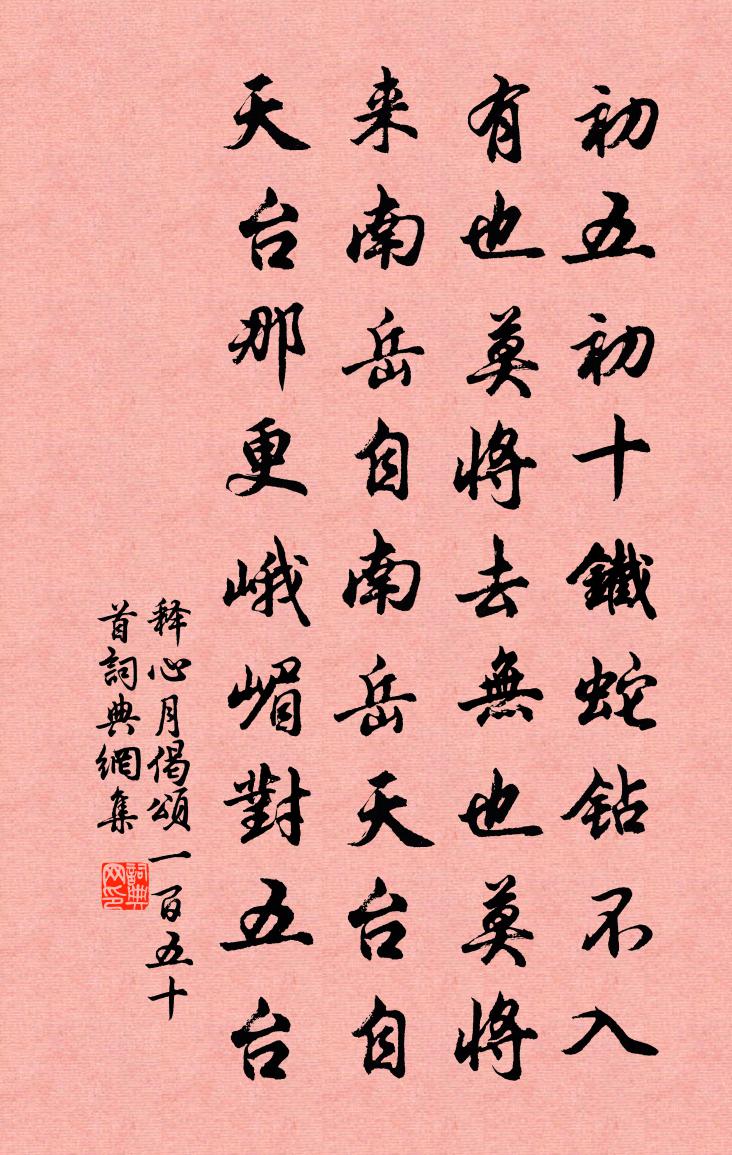 初五初十鐵蛇钻不入
有也莫將去無也莫將
来南岳自南岳天台自
天台那更峨嵋對五台
释心月偈頌一百五十
首詞典網集
詞典网印